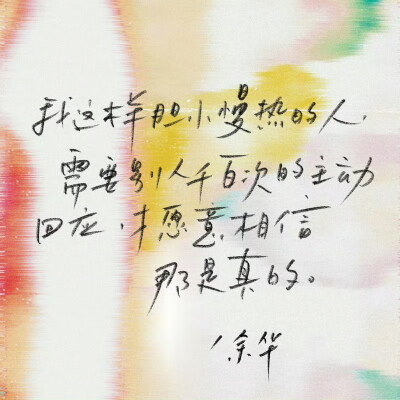 我这样胆小慢热的人，
需要别人千百次的主动
回应，才愿意相信
那是真的。
余华